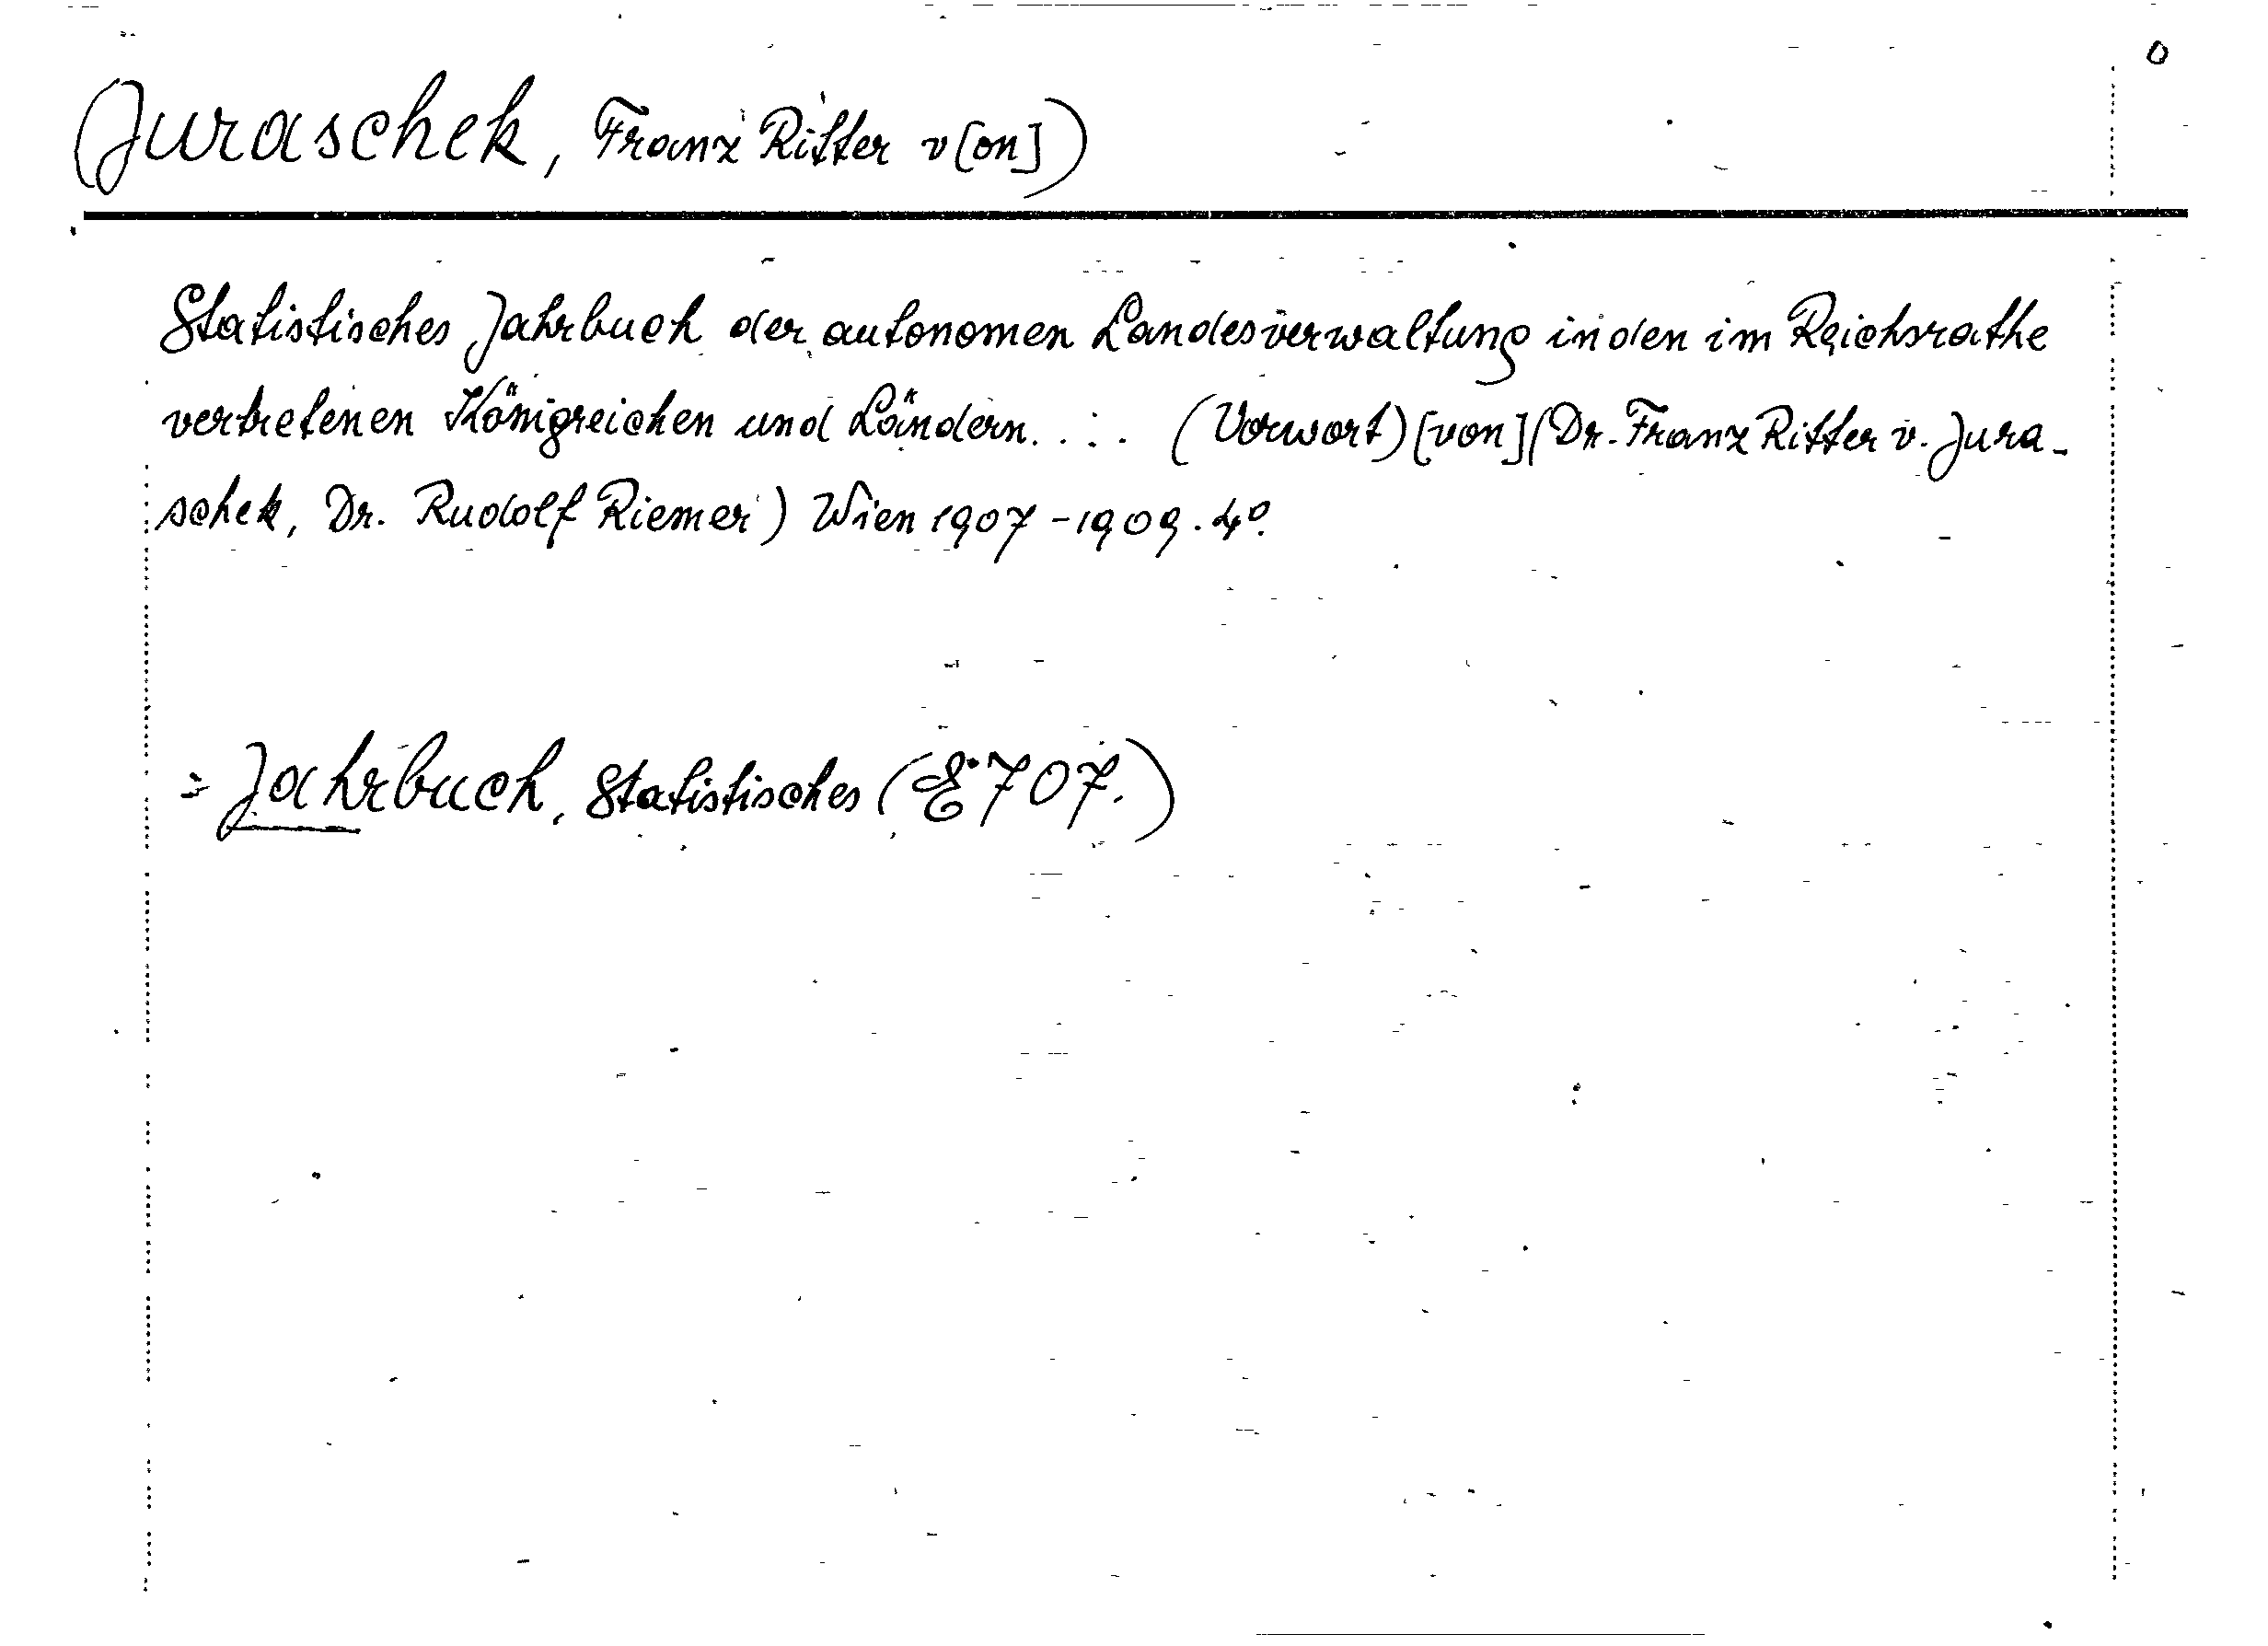 0
(Juraschek, Franz Ritter v[on])
Statistisches Jahrbuch der autonomen Landesverwaltung in den im Reichsrathe
vertretenen Königreichen und Ländern. . . . (Vorwort) [von] (Dr. Franz Ritter v. Jura-
schek, Dr. Rudolf Riemer) Wien 1907-1909. 4°.
= Jahrbuch, Statistisches (E 707.)